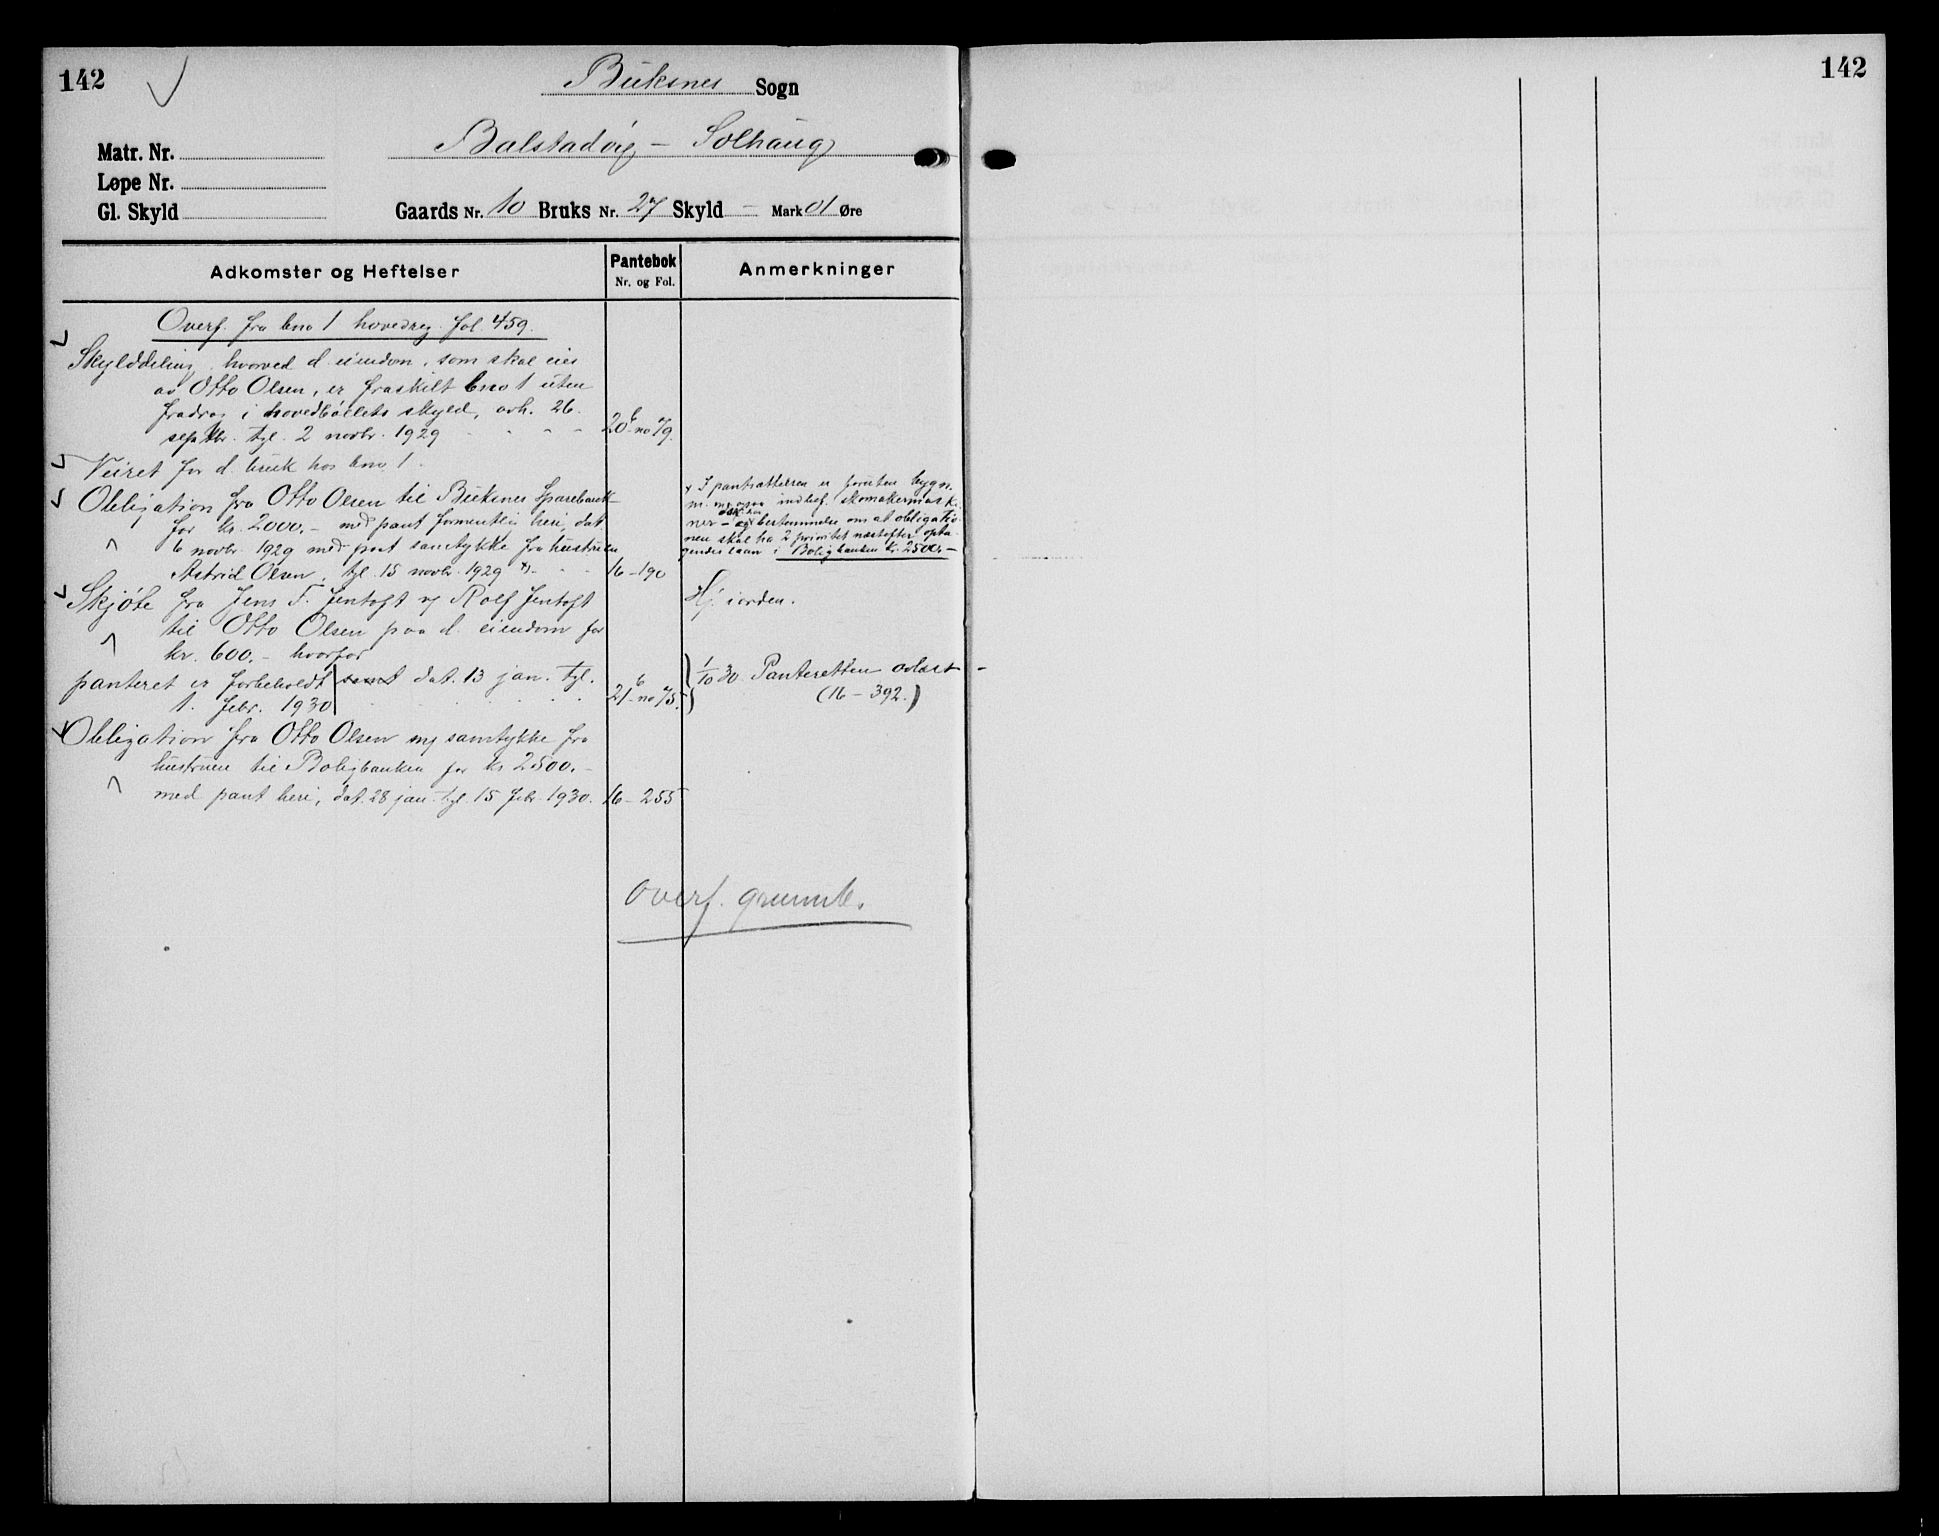 142
Buksnes Sogn
Matr. Nr.
Balstadøig - Solhaug
Løpe Nr.
Gl. Skyld
Gaards Nr. 10 Bruks Nr. 27 Skyld - Mark 01 Øre
Adkomster og Heftelser
Pantebok
Nr. og Fol.
Anmerkninger
Overf. fra bno 1 hovedreg. fol. 459.
Skylddeling, hvorved d. eiendom, som skal eies
av Otto Olsen, er fraskilt bno 1 uten
fradrag i hovedbølets skyld, avh. 26.
septbr. tgl. 2 novbr. 1929 20 b - no 79.
Veiret for d. bruk hos bno 1.
Obligation fra Otto Olsen til Buksnes Sparebank
for kr. 2000.- med pant formentlig heri, dat
6 novbr. 1929 med samtykke fra hustruen
Astrid Olsen, tgl. 15 novbr. 1929 x). 16-190
x I pantsættelsen er foruten bygn.
m. m. ogsaa indbef. skomakermaski
ner - og bestemmelse om at obligatio-
nen skal ha 2 prioritet næstefter opta-
gendes laan i Boligbanken kr. 2500.-
Skjøte fra Jens F. Jentoft og Rolf Jentoft
til Otto Olsen paa d. eiendom for
kr. 600.- hvorfor
panteret er forbeholdt samt dat. 13 jan. tgl.
1. febr. 1930 21 b - no 75.
Hj. i orden.
1/10 30 Panteretten avlæst -
(16-392.)
Obligation fra Otto Olsen mj samtykke fra
hustruen til Boligbanken for kr 2500.-
med pant heri, dat. 28 jan. tgl. 15 febr. 1930. 16-255
Overf. grunnb.
142